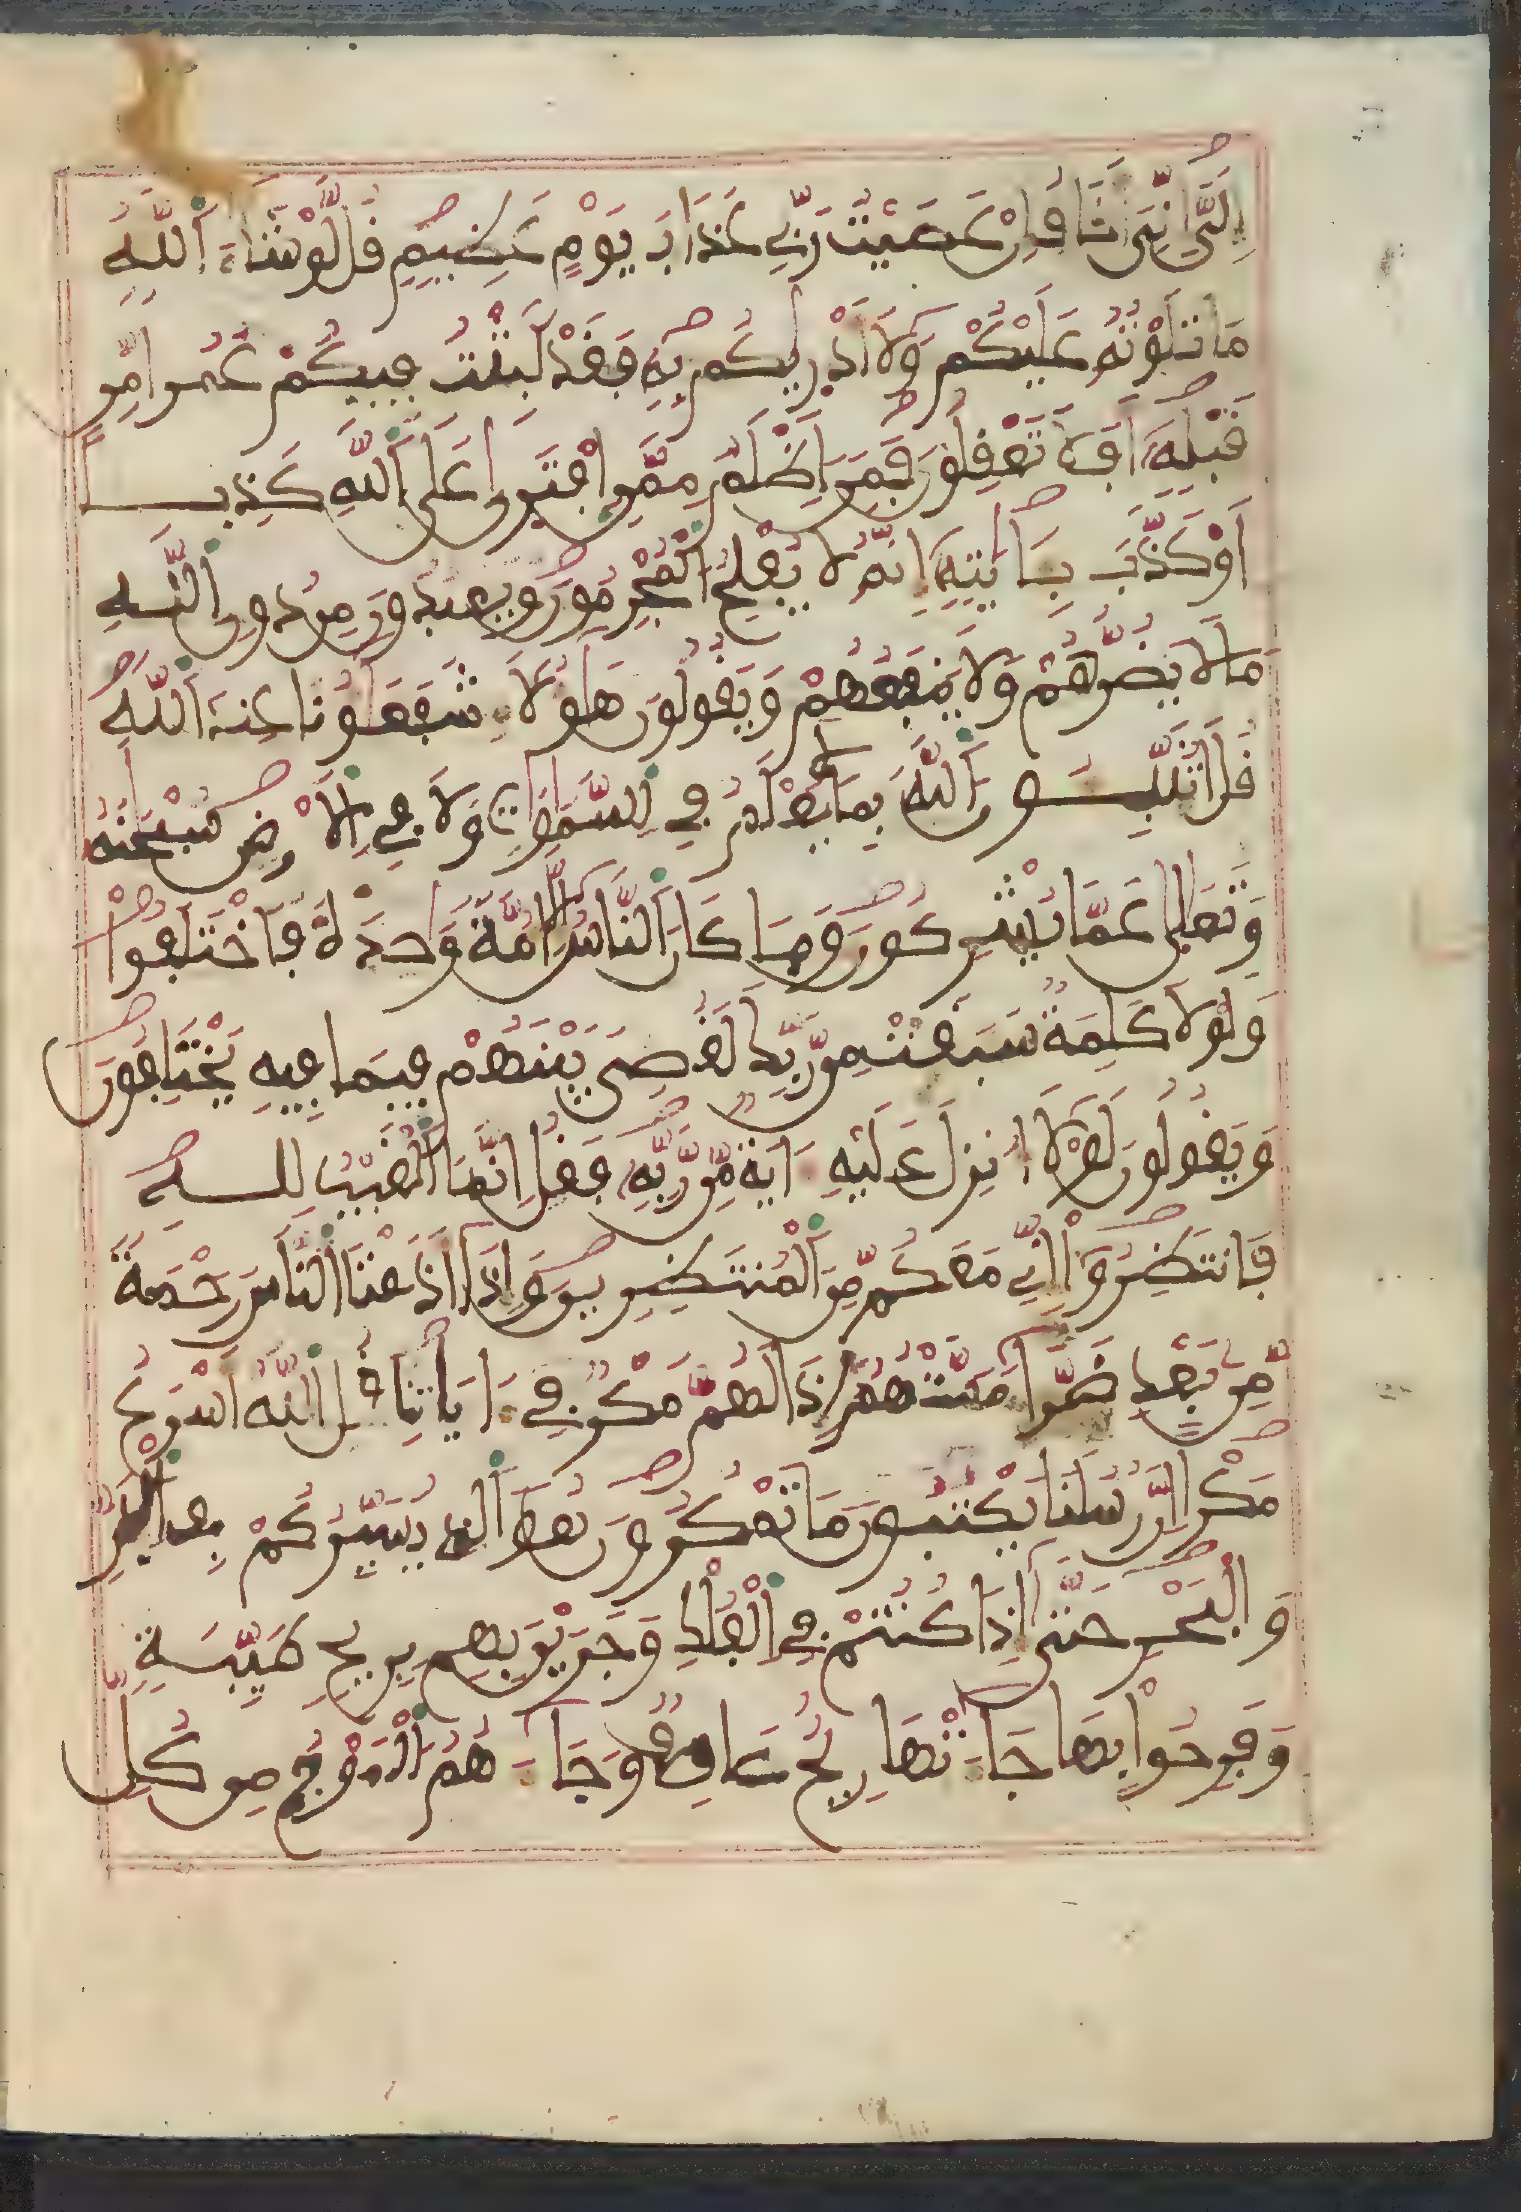 إِلَيَّ إِنِّيَ أَخَافُ إِنْ عَصَيْتُ رَبِّي عَذَابَ يَوْمٍ عَظِيمٍ قُل لَّوْ شَاءَ اَللَّهُ
مَا تَلَوْتُهُ عَلَيْكُمْ وَلَا أَدْرِيكُم بِهِ فَقَدْ لَبِثْتُ فِيكُمْ عُمُرا مِّن
قَبْلِهِ أَفَلَا تَعْقِلُونَ فَمَنَ اَظْلَمُ مِمَّنِ اِفْتَرى عَلَى اَللَّهِ كَذِباً
اَوْ كَذَّبَ بِـَايَتِهِ إِنَّهُ لَا يُفْلِحُ اُلْمُجْرِمُونَ وَيَعْبُدُونَ مِن دُونِ اِللَّهِ
مَا لَا يَضُرُّهُمْ وَلَا يَنفَعُهُمْ وَيَقُولُونَ هَؤُلَاءِ شُفَعَؤُنَا عِندَ اَللَّهِ
قُلَ اَتُنَبِّـُونَ اَللَّهَ بِمَا لَا يَعْلَمُ فِي اِلسَّمَوَاتِ وَلَا فِي اِلْأَرْضِ سُبْحَنَهُ
وَتَعَلى عَمَّا يُشْرِكُونَ وَمَا كَانَ اَلنَّاسُ إِلَّا أُمَّةً وَاحِدَةً فَاخْتَلَفُوا
وَلَوْلَا كَلِمَةٌ سَبَقَتْ مِن رَّبِّكَ لَقُضِيَ بَيْنَهُمْ فِيمَا فِيهِ يَخْتَلِفُونَ
وَيَقُولُونَ لَوْلَا أُنزِلَ عَلَيْهِ ءَايَةٌ مِّن رَّبِّهِ فَقُلِ اِنَّمَا اَلْغَيْبُ لِلَّهِ
فَانتَظِرُوا إِنِّي مَعَكُم مِّنَ اَلْمُنتَظِرِينَ وَإِذَا أَذَقْنَا اَلنَّاسَ رَحْمَةً
مِّن بَعْدِ ضَرَّاءَ مَسَّتْهُمُ إِذَا لَهُم مَّكْرٌ فِي ءَايَاتِنَا قُلِ اِللَّهُ أَسْرَعُ
مَكْرا اِنَّ رُسُلَنَا يَكْتُبُونَ مَا تَمْكُرُونَ هُوَ اَلذِي يُسَيِّرُكُمْ فِي اِلْبَرِّ
وَالْبَحْرِ حَتَّى إِذَا كُنتُمْ فِي اِلْفُلْكِ وَجَرَيْنَ بِهِم بِرِيحٍ طَيِّبَةٍ
وَفَرِحُوا بِهَا جَاءَتْهَا رِيحٌ عَاصِفٌ وَجَاءَهُمُ اُلْمَوْجُ مِن كُلِّ